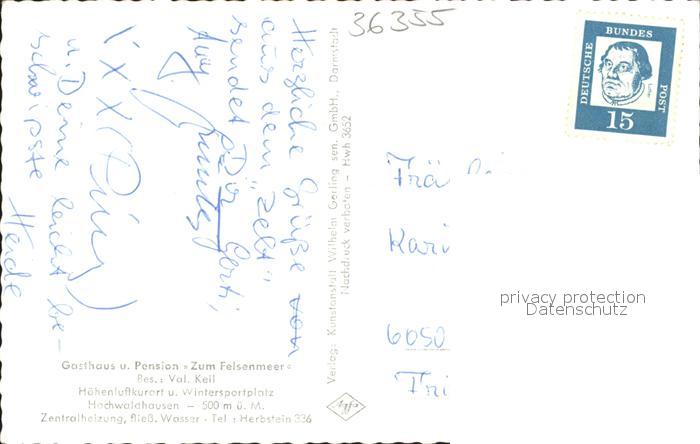 36355
DEUTSCHE BUNDES POST
Luther
15
Herzliche Grüße von
aus dem "Zelt"
sendet Dir
u. Deine leicht be-
schwipste
Heide
Verlag: Kunstanstalt Wilhelm Gerling sen. GmbH., Darmstadt
Nachdruck verboten - Hwh 3652
6050
privacy protection
Datenschutz
Gasthaus u. Pension »Zum Felsenmeer«
Bes.: Val. Keil
Höhenluftkurort u. Wintersportplatz
Hochwaldhausen — 500 m ü. M.
Zentralheizung, fließ. Wasser - Tel.: Herbstein 336